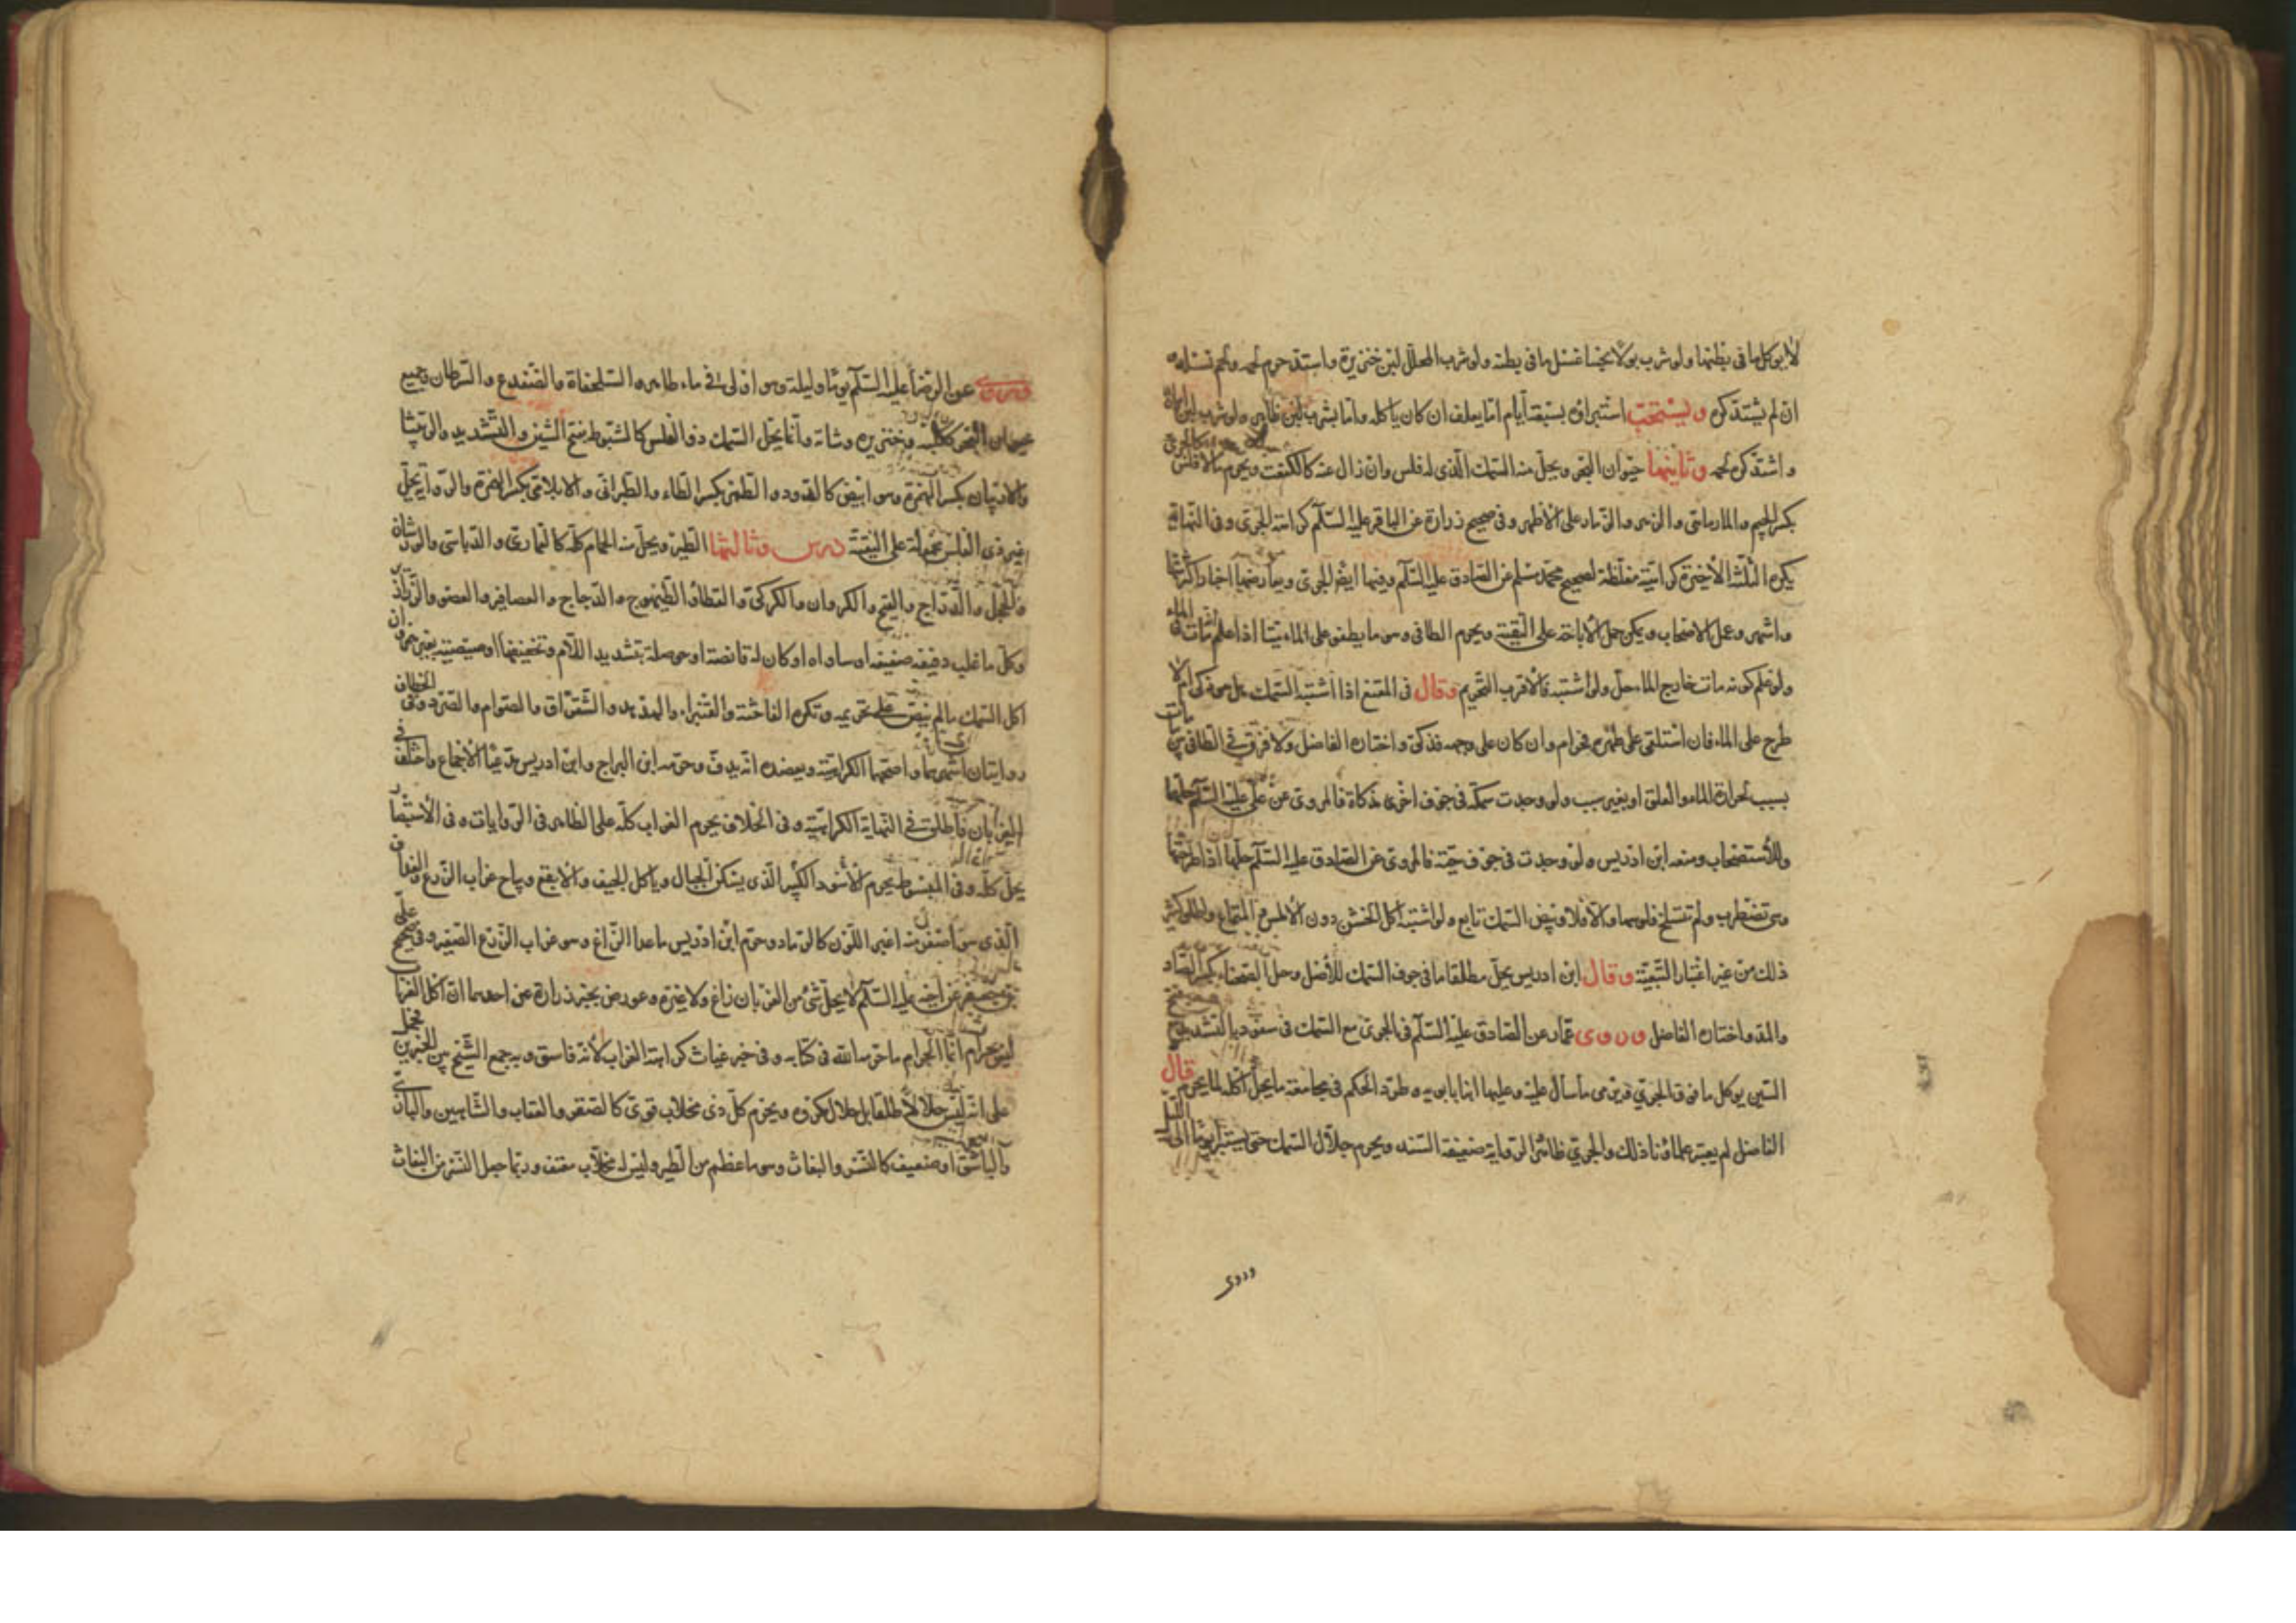 لا يوكل ما فى بطنها ولو شرب بولا نجسا غسل ما فى بطنه ولو شرب المحلل لبن خنزيرة واشتد حرم لحمه ولحم نسله
ان لم يشتد كره ويستحب استبراؤه بسبعة ايام اما يعلف ان كان ياكله واما بشرب لبن طاهر ولو شرب لبن امراة
واشتد كره لحمه وثانيها حيوان البحر ويحل منه السمك الذى له فلس وان زال عنه كالكنعت ويحرم ما لا فلس له كالجرى
بكسر الجيم والمارماهى والزهو والزمار على الاظهر وفى صحيح زرارة عن الباقر عليه السلام كراهة الجرى وفى النهاية
يكره الثلثة الاخيرة كراهية مغلظة لصحيح محمد بن مسلم عن الصادق عليه السلام وفيها ايضا الجرى ويعارضها اخبار اكثر منها
واشهر وعمل الاصحاب ويمكن حمل الاباحة على التقية ويحرم الطافى وهو ما يطفو على الماء ميتا اذا علم مات فى الماء
ولو علم كونه مات خارج الماء حل ولو اشتبه فالاقرب التحريم وقال فى المقنع اذا اشتبه السمك هل هو ذكى ام لا
طرح على الماء فان استلقى على ظهره فحرام وان كان على وجهه فذكى واختاره الفاضل ولا فرق فى الطافى بين ما مات
بسبب حرارة الماء والعلق او بغير سبب ولو وجدت سمكة فى جوف اخرى مذكاة فالمروى عن على عليه السلام حلها
وللاستصحاب ومنعه ابن ادريس ولو وجدت فى جوف حية فالمروى عن الصادق عليه السلام حلها اذا طرحتها
وهى تضطرب ولم تنسلخ فلوسها والا فلا وبيض السمك تابع ولو اشتبه اكل الخشن دون الاملس
ذلك من غير اعتبار التبعية وقال ابن ادريس يحل مطلقا ما فى جوف السمك للاصل وحل الصحناء بكسر الصاد
والمد واختاره الفاضل وروى عمار عن الصادق عليه السلام فى الجرى مع السمك فى سفود بالتشديد مع فتح
السين يوكل ما فوق الجرى ويرمى ما سال عليه وعليها ابنا بابويه وطرد الحكم فى مجامعة ما يحل اكله لما يحرم قال
الفاضل لم يعتبر علماؤنا ذلك والجرى طاهر والرواية ضعيفة السند ويحرم جلال السمك حتى يستبرا يوما الى الليل
وروى
وروى عن الرضا عليه السلام يوما وليلة وهو اولى فى ماء طاهر والسلحفاة والضفدع والسرطان وجميع
حيوان البحر ككلبه وخنزيره وشاته وانما يحل السمك ذو الفلس كالشبوط بفتح الشين والتشديد والربيثا
والاربيان بكسر الهمزة وهو ابيض كالدود والطمر بكسر الطاء والطبرانى والابلامى بكسر الهمزة والرواية بحل
غير ذى الفلس محمولة على التقية درس وثالثها الطير ويحل منه الحمام كله كالقمارى والدباسى والورشان
والحجل والدراج والقبج والكروان والكركى والقطا والطيهوج والدجاج والعصافير والصعو والزرازير
وكل ما غلب دفيفه صفيفه او ساواه او كان له قانصة او حوصلة بتشديد اللام وتخفيفها او صيصية بغير همز وان
اكل السمك ما لم ينص على تحريمه وتكره الفاختة والقنبراء والهدهد والشقراق والصوام والصرد وفى الخطاف
روايتان اشهرهما واصحهما الكراهية ويعضده انه يدف وحرمه ابن البراج وابن ادريس مدعيا الاجماع واختلف فى
الغربان فاطلق فى النهاية الكراهية وفى الخلاف يحرم الغراب كله على الظاهر فى الروايات وفى الاستبصار
يحل كله وفى المبسوط يحرم الاسود الكبير الذى يسكن الجبال وياكل الجيف والابقع ويباح غراب الزرع والغداف
الذى هو اصغر منه اغبر اللون كالرماد وحرم ابن ادريس ما عدا الزاغ وهو غراب الزرع الصغير وفى صحيح على
بن جعفر عن اخيه عليه السلام لا يحل شئ من الغربان زاغ ولا غيره وعورض بخبر زرارة عن احدهما ان اكل الغراب
ليس بحرام انما الحرام ما حرمه الله فى كتابه وفى خبر غياث كراهة الغراب لانه فاسق وبه جمع الشيخ بين الخبرين فحمل
على انه ليس حلالا طلقا بل حلال مكروه ويحرم كل ذى مخلاب قوى كالصقر والعقاب والشاهين والبازى
والباشق او ضعيف كالنسر والبغاث وهو ما عظم من الطير وليس له مخلاب معقف وربما جعل النسر من البغاث